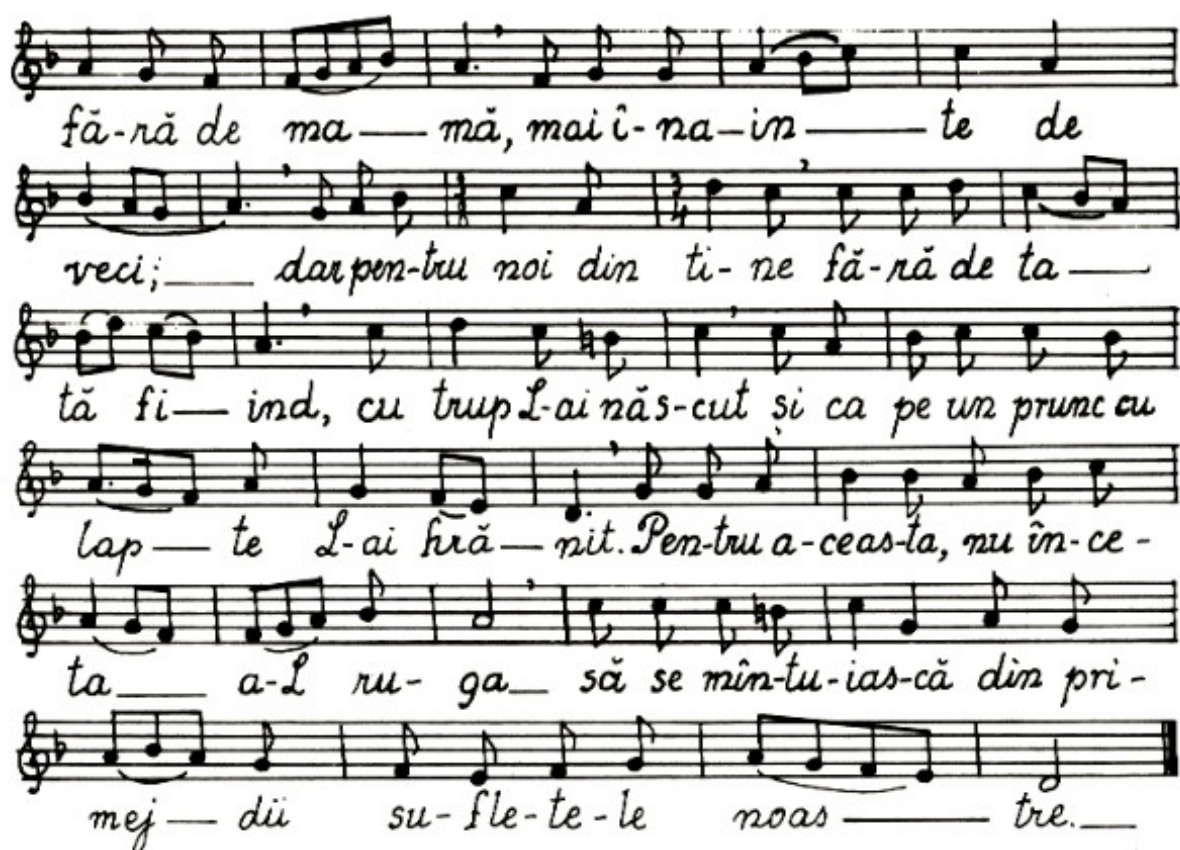 fă-ră de ma — mă, mai î-na-in — te de
veci; — dar pen-tru noi din ti-ne fă-ră de ta —
tă fi — ind, cu trup L-ai năs-cut și ca pe un prunc cu
lap — te L-ai hră — nit. Pen-tru a-ceas-ta, nu în-ce-
ta — a-L ru-ga — să se mîn-tu-ias-că din pri-
mej — dii su-fle-te-le noas — tre. —